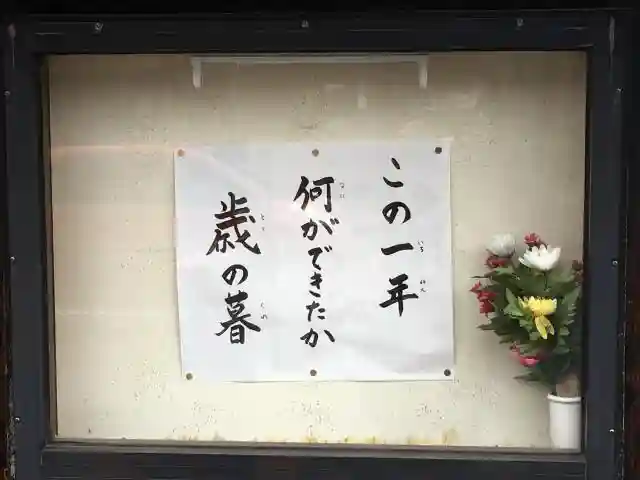 この一年
何ができたか
歳の暮